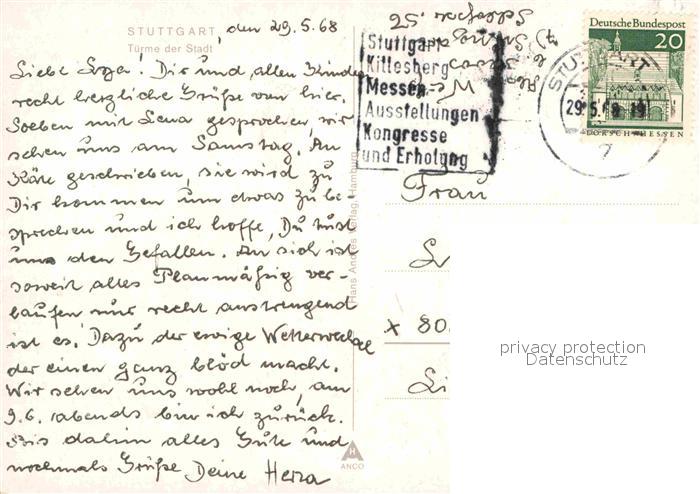 STUTTGART, den 29.5.68
Türme der Stadt
Liebe Inge! Dir und allen Kindern
recht herzliche Grüße von hier.
Soeben mit Lena gesprochen, wir
sehen uns am Samstag. An
Käte geschrieben, sie wird zu
Dir kommen um etwas zu be-
sprechen und ich hoffe, Du tust
uns den Gefallen. An sich ist
soweit alles Planmäßig ver-
laufen nur recht anstrengend
ist es. Dazu der ewige Wetterwechsel
der einen ganz blöd macht.
Wir sehen uns wohl noch, am
9.6. abends bin ich zurück.
Bis dahin alles Gute und
nochmals Grüße Deine Herta
Hans Andres Verlag, Hamburg
ANCO
Stuttgart
Killesberg
Messen
Ausstellungen
Kongresse
und Erholung
STUTTGART
29.5.68-19
7
Deutsche Bundespost
20
LORSCH·HESSEN
Frau
x 80
privacy protection
Datenschutz